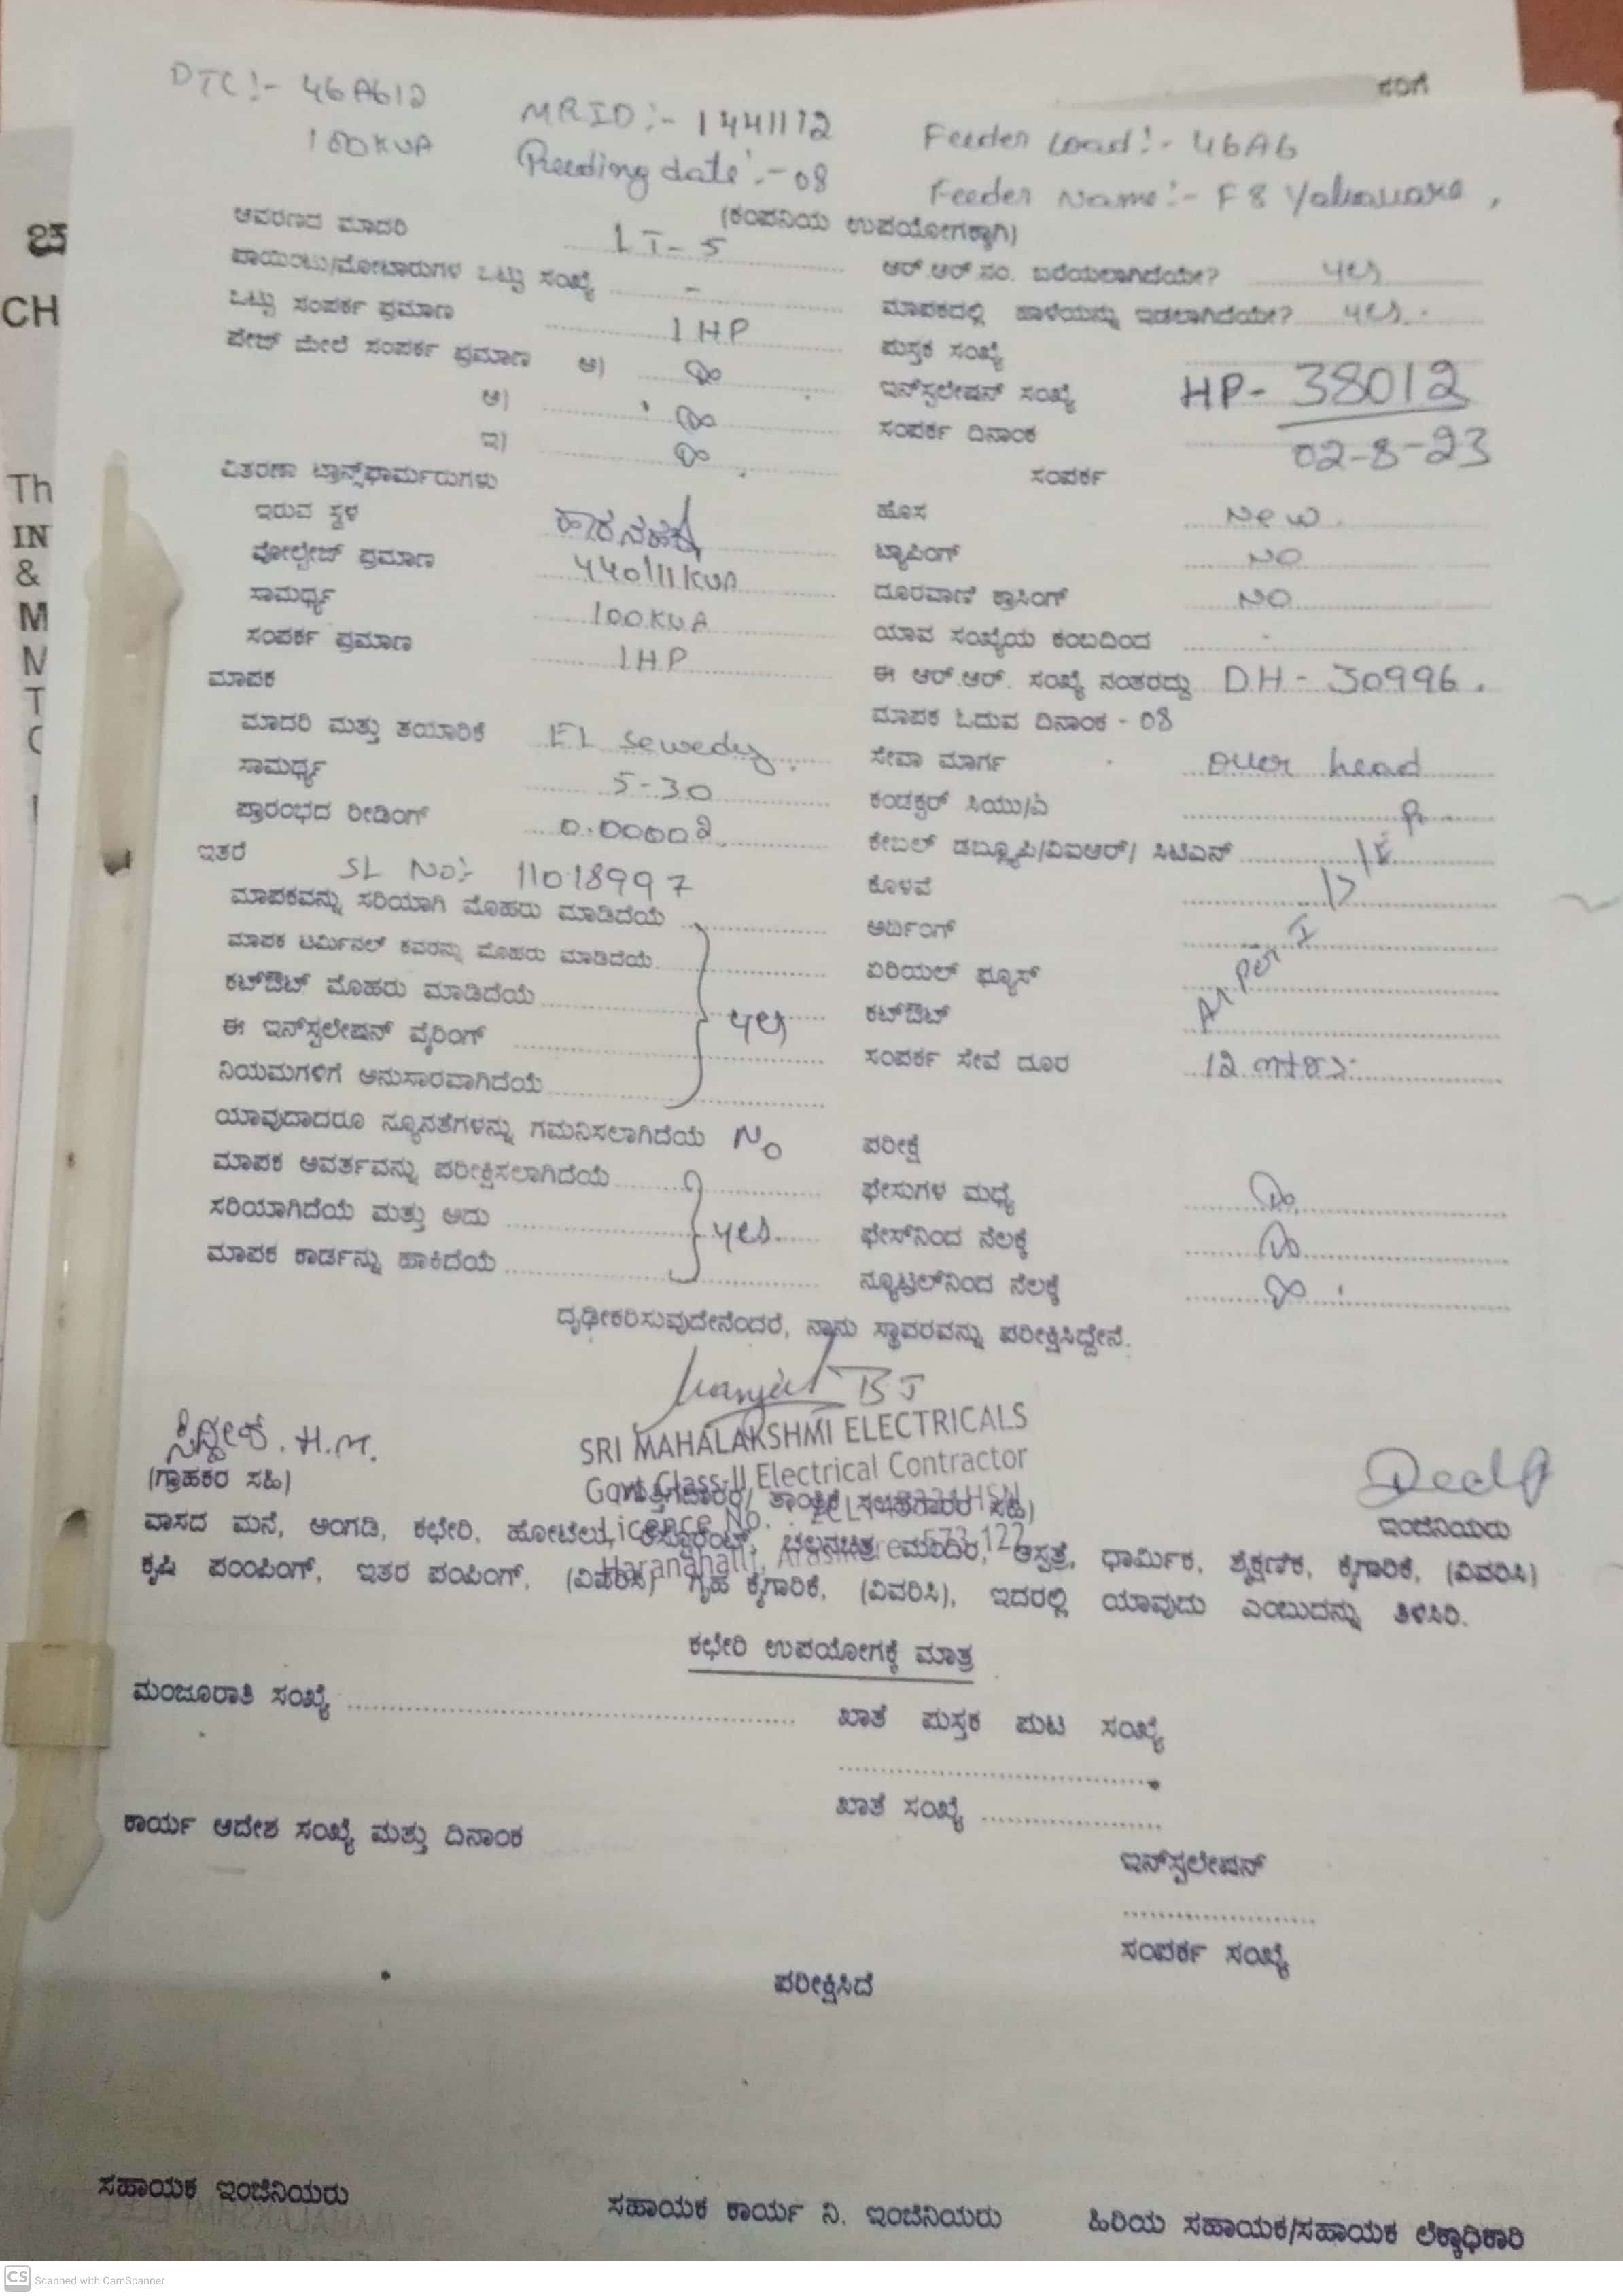 ಸರಿಗೆ
DTC:- 46A612
100KVA
MRID:- 1441112
Reeding date:- 08
Feeder Load:- 46A6
Feeder Name:- F8 Yalavare,
(ಕಂಪನಿಯ ಉಪಯೋಗಕ್ಕಾಗಿ)
ಆವರಣದ ಮಾದರಿ LT-5
ಪಾಯಿಂಟು/ಮೋಟಾರುಗಳ ಒಟ್ಟು ಸಂಖ್ಯೆ -
ಒಟ್ಟು ಸಂಪರ್ಕ ಪ್ರಮಾಣ 1HP
ಪೇಜ್ ಮೇಲೆ ಸಂಪರ್ಕ ಪ್ರಮಾಣ ಅ) ∞
ಆ) ∞
ಇ) ∞
ವಿತರಣಾ ಟ್ರಾನ್ಸ್‌ಫಾರ್ಮರುಗಳು
ಇರುವ ಸ್ಥಳ ಹಾರನಹಳ್ಳಿ
ವೋಲ್ಟೇಜ್ ಪ್ರಮಾಣ 440/11KVA
ಸಾಮರ್ಥ್ಯ 100KVA
ಸಂಪರ್ಕ ಪ್ರಮಾಣ 1HP
ಮಾಪಕ
ಮಾದರಿ ಮತ್ತು ತಯಾರಿಕೆ EL sewedy.
ಸಾಮರ್ಥ್ಯ 5-30
ಪ್ರಾರಂಭದ ರೀಡಿಂಗ್ 0.00002
ಇತರೆ SL No:- 11018997
ಮಾಪಕವನ್ನು ಸರಿಯಾಗಿ ಮೊಹರು ಮಾಡಿದೆಯೆ
ಮಾಪಕ ಟರ್ಮಿನಲ್ ಕವರನ್ನು ಮೊಹರು ಮಾಡಿದೆಯೆ
ಕಟ್‌ಔಟ್ ಮೊಹರು ಮಾಡಿದೆಯೆ
yes
ಈ ಇನ್‌ಸ್ಟಲೇಷನ್ ವೈರಿಂಗ್
ನಿಯಮಗಳಿಗೆ ಅನುಸಾರವಾಗಿದೆಯೆ
ಯಾವುದಾದರೂ ನ್ಯೂನತೆಗಳನ್ನು ಗಮನಿಸಲಾಗಿದೆಯೆ No
ಮಾಪಕ ಆವರ್ತವನ್ನು ಪರೀಕ್ಷಿಸಲಾಗಿದೆಯೆ
ಸರಿಯಾಗಿದೆಯೆ ಮತ್ತು ಅದು yes.
ಮಾಪಕ ಕಾರ್ಡನ್ನು ಹಾಕಿದೆಯೆ
ಆರ್.ಆರ್.ನಂ. ಬರೆಯಲಾಗಿದೆಯೇ? yes
ಮಾಪಕದಲ್ಲಿ ಹಾಳೆಯನ್ನು ಇಡಲಾಗಿದೆಯೇ? yes.
ಪುಸ್ತಕ ಸಂಖ್ಯೆ
ಇನ್‌ಸ್ಟಲೇಷನ್ ಸಂಖ್ಯೆ HP-38012
ಸಂಪರ್ಕ ದಿನಾಂಕ 02-8-23
ಸಂಪರ್ಕ
ಹೊಸ New.
ಟ್ಯಾಪಿಂಗ್ NO
ದೂರವಾಣಿ ಕ್ರಾಸಿಂಗ್ NO
ಯಾವ ಸಂಖ್ಯೆಯ ಕಂಬದಿಂದ -
ಈ ಆರ್.ಆರ್. ಸಂಖ್ಯೆ ನಂತರದ್ದು DH-30996.
ಮಾಪಕ ಓದುವ ದಿನಾಂಕ - 08
ಸೇವಾ ಮಾರ್ಗ over head
ಕಂಡಕ್ಟರ್ ಸಿಯು/ಎ
ಕೇಬಲ್ ಡಬ್ಲ್ಯೂಪಿ/ವಿಐಆರ್/ ಸಿಟಿಎಸ್
ಕೊಳವೆ
ಅರ್ದಿಂಗ್
ಏರಿಯಲ್ ಫ್ಯೂಸ್
ಕಟ್‌ಔಟ್
As per
ಸಂಪರ್ಕ ಸೇವೆ ದೂರ 12 mtrs.
ಪರೀಕ್ಷೆ
ಫೇಸುಗಳ ಮಧ್ಯೆ ∞
ಫೇಸ್‌ನಿಂದ ನೆಲಕ್ಕೆ ∞
ನ್ಯೂಟ್ರಲ್‌ನಿಂದ ನೆಲಕ್ಕೆ ∞
ದೃಢೀಕರಿಸುವುದೇನೆಂದರೆ, ನಾನು ಸ್ಥಾವರವನ್ನು ಪರೀಕ್ಷಿಸಿದ್ದೇನೆ.
SRI MAHALAKSHMI ELECTRICALS
Govt Class-II Electrical Contractor
Licence No.
Haranahalli,
(ಗ್ರಾಹಕರ ಸಹಿ)
ಇಂಜಿನಿಯರು
ವಾಸದ ಮನೆ, ಅಂಗಡಿ, ಕಛೇರಿ, ಹೋಟೆಲು, ರೆಸ್ಟೊರೆಂಟ್, ಚಲನಚಿತ್ರ ಮಂದಿರ, ಆಸ್ಪತ್ರೆ, ಧಾರ್ಮಿಕ, ಶೈಕ್ಷಣಿಕ, ಕೈಗಾರಿಕೆ, (ವಿವರಿಸಿ)
ಕೃಷಿ ಪಂಪಿಂಗ್, ಇತರ ಪಂಪಿಂಗ್, (ವಿವರಿಸಿ) ಗೃಹ ಕೈಗಾರಿಕೆ, (ವಿವರಿಸಿ), ಇದರಲ್ಲಿ ಯಾವುದು ಎಂಬುದನ್ನು ತಿಳಿಸಿರಿ.
ಕಛೇರಿ ಉಪಯೋಗಕ್ಕೆ ಮಾತ್ರ
ಮಂಜೂರಾತಿ ಸಂಖ್ಯೆ
ಖಾತೆ ಪುಸ್ತಕ ಪುಟ ಸಂಖ್ಯೆ
ಖಾತೆ ಸಂಖ್ಯೆ
ಕಾರ್ಯ ಆದೇಶ ಸಂಖ್ಯೆ ಮತ್ತು ದಿನಾಂಕ
ಇನ್‌ಸ್ಟಲೇಷನ್
ಸಂಪರ್ಕ ಸಂಖ್ಯೆ
ಪರೀಕ್ಷಿಸಿದೆ
ಸಹಾಯಕ ಇಂಜಿನಿಯರು
ಸಹಾಯಕ ಕಾರ್ಯ ನಿ. ಇಂಜಿನಿಯರು
ಹಿರಿಯ ಸಹಾಯಕ/ಸಹಾಯಕ ಲೆಕ್ಕಾಧಿಕಾರಿ
CS Scanned with CamScanner